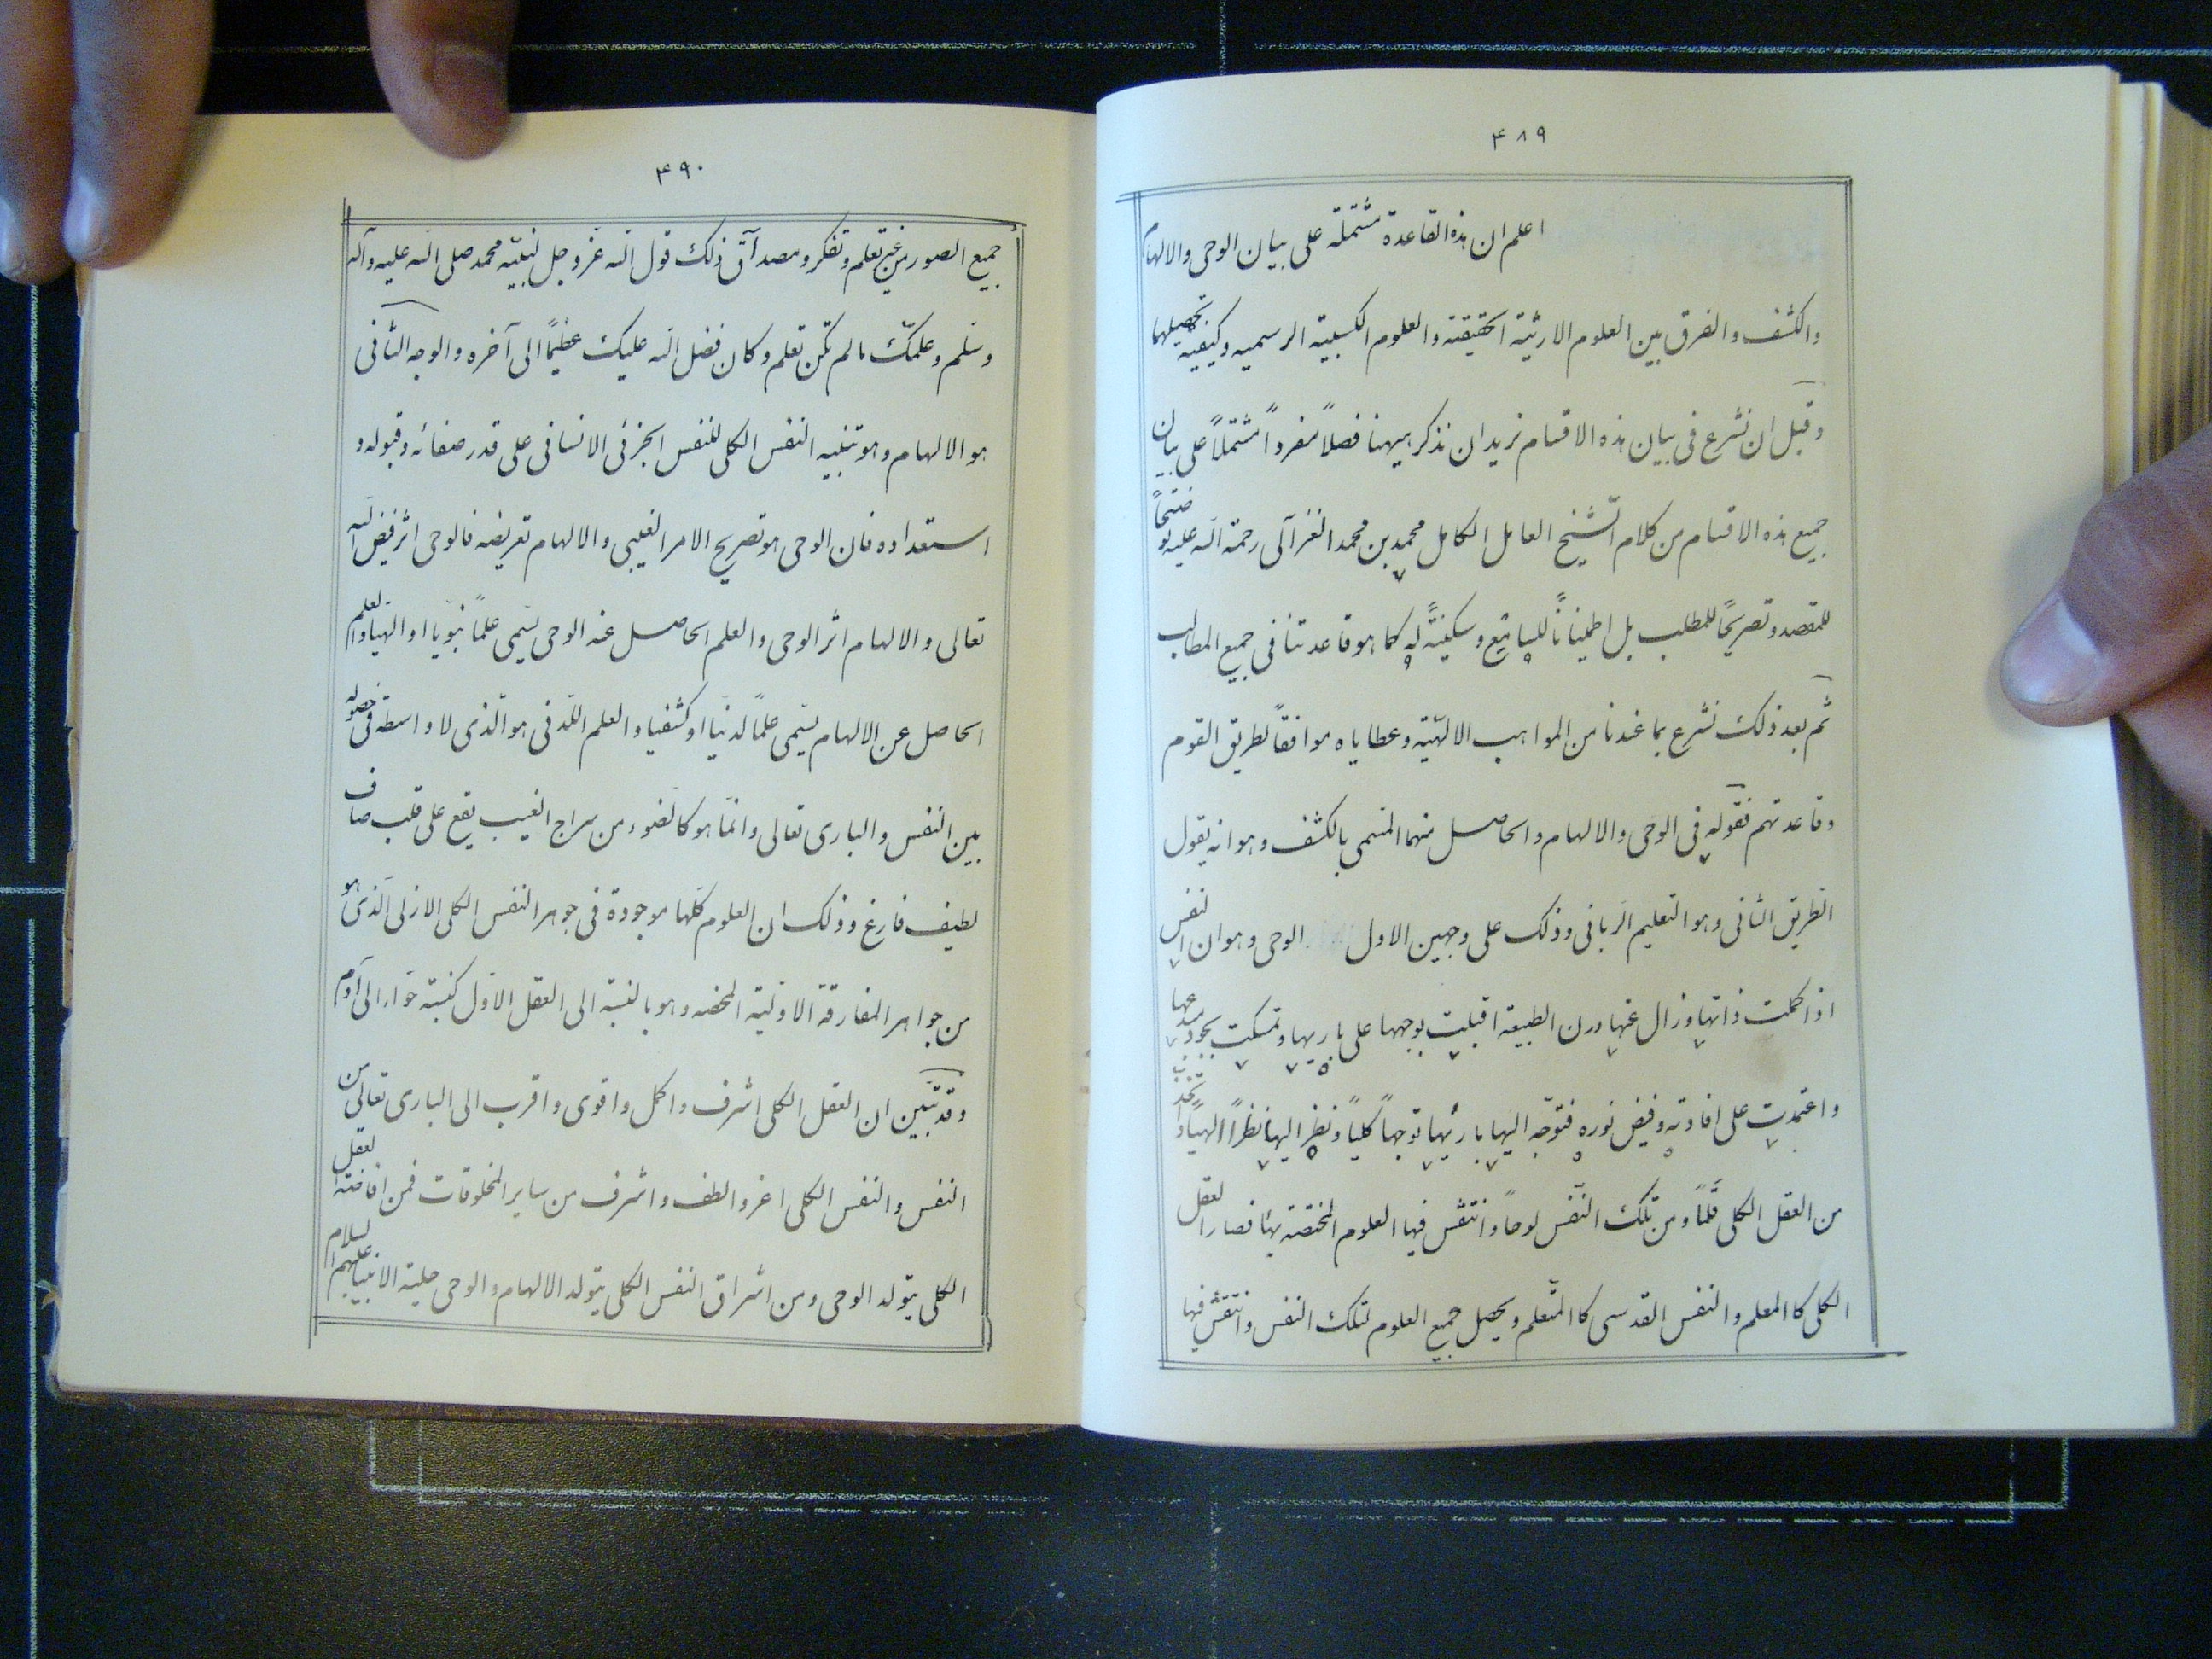 ۴۸۹
اعلم ان هذه القاعدة مشتملة على بيان الوحى والالهام
والكشف والفرق بين العلوم الارثية الحقيقة والعلوم الكسبية الرسميه وكيفية تحصيلهما
وقبل ان نشرع فى بيان هذه الاقسام نريد ان نذكر هيهنا فصلاً مفرداً مشتملاً على بيان
جميع هذه الاقسام من كلام الشيخ العامل الكامل محمد بن محمد الغزالى رحمة الله عليه توضيحاً
للمقصد وتصريحًا للمطلب بل اطمينانًا للسامع وسكينةً له كما هو قاعدتنا فى جميع المطالب
ثم بعد ذلك نشرع بما عندنا من المواهب الالهية وعطاياه موافقاً لطريق القوم
وقاعدتهم فقوله فى الوحى والالهام والحاصل منهما المسمى بالكشف وهو انه يقول
الطريق الثانى وهو التعليم الربانى وذلك على وجهين الاول الوحى وهو ان النفس
اذا كملت ذاتها وزال عنها درن الطبيعة اقبلت بوجهها على باريها وتمسكت بجود مبدعها
واعتمدت على افادته وفيض نوره فتوجه اليها باريها توجهاً كلياً ونظر اليها نظراً الهياً واتخذ
من العقل الكلى قلماً ومن تلك النفس لوحاً وانتقش فيها العلوم المختصة بها فصار العقل
الكلى كالمعلم والنفس القدسى كالمتعلم ويحصل جميع العلوم لتلك النفس وانتقش فيها
۴۹۰
جميع الصور من غير تعلم وتفكر ومصداق ذلك قول الله عز وجل لنبيه محمد صلى الله عليه وآله
وسلم وعلمك ما لم تكن تعلم وكان فضل الله عليك عظيمًا الى آخره والوجه الثانى
هو الالهام وهو تنبيه النفس الكلى للنفس الجزئى الانسانى على قدر صفائه وقبوله و
استعداده فان الوحى هو تصريح الامر الغيبى والالهام تعريضه فالوحى اثر فيض الله
تعالى والالهام اثر الوحى والعلم الحاصل عنه الوحى يسمى علمًا نبويا او الهيا والعلم
الحاصل عن الالهام يسمى علمًا لدنيا او كشفيا والعلم اللدنى هو الذى لا واسطة فى حصوله
بين النفس والبارى تعالى وانما هو كالضوء من سراج الغيب يقع على قلب صاف
لطيف فارغ وذلك ان العلوم كلها موجودة فى جوهر النفس الكلى الازلى الذى هو
من جواهر المفارقة الاولية المحضه وهو بالنسبة الى العقل الاول كنسبة حواء الى آدم
وقد تبين ان العقل الكلى اشرف واكمل واقوى واقرب الى البارى تعالى من
النفس والنفس الكلى اعز والطف واشرف من ساير المخلوقات فمن افاضة العقل
الكلى يتولد الوحى ومن اشراق النفس الكلى يتولد الالهام والوحى حلية الانبياء عليهم السلام